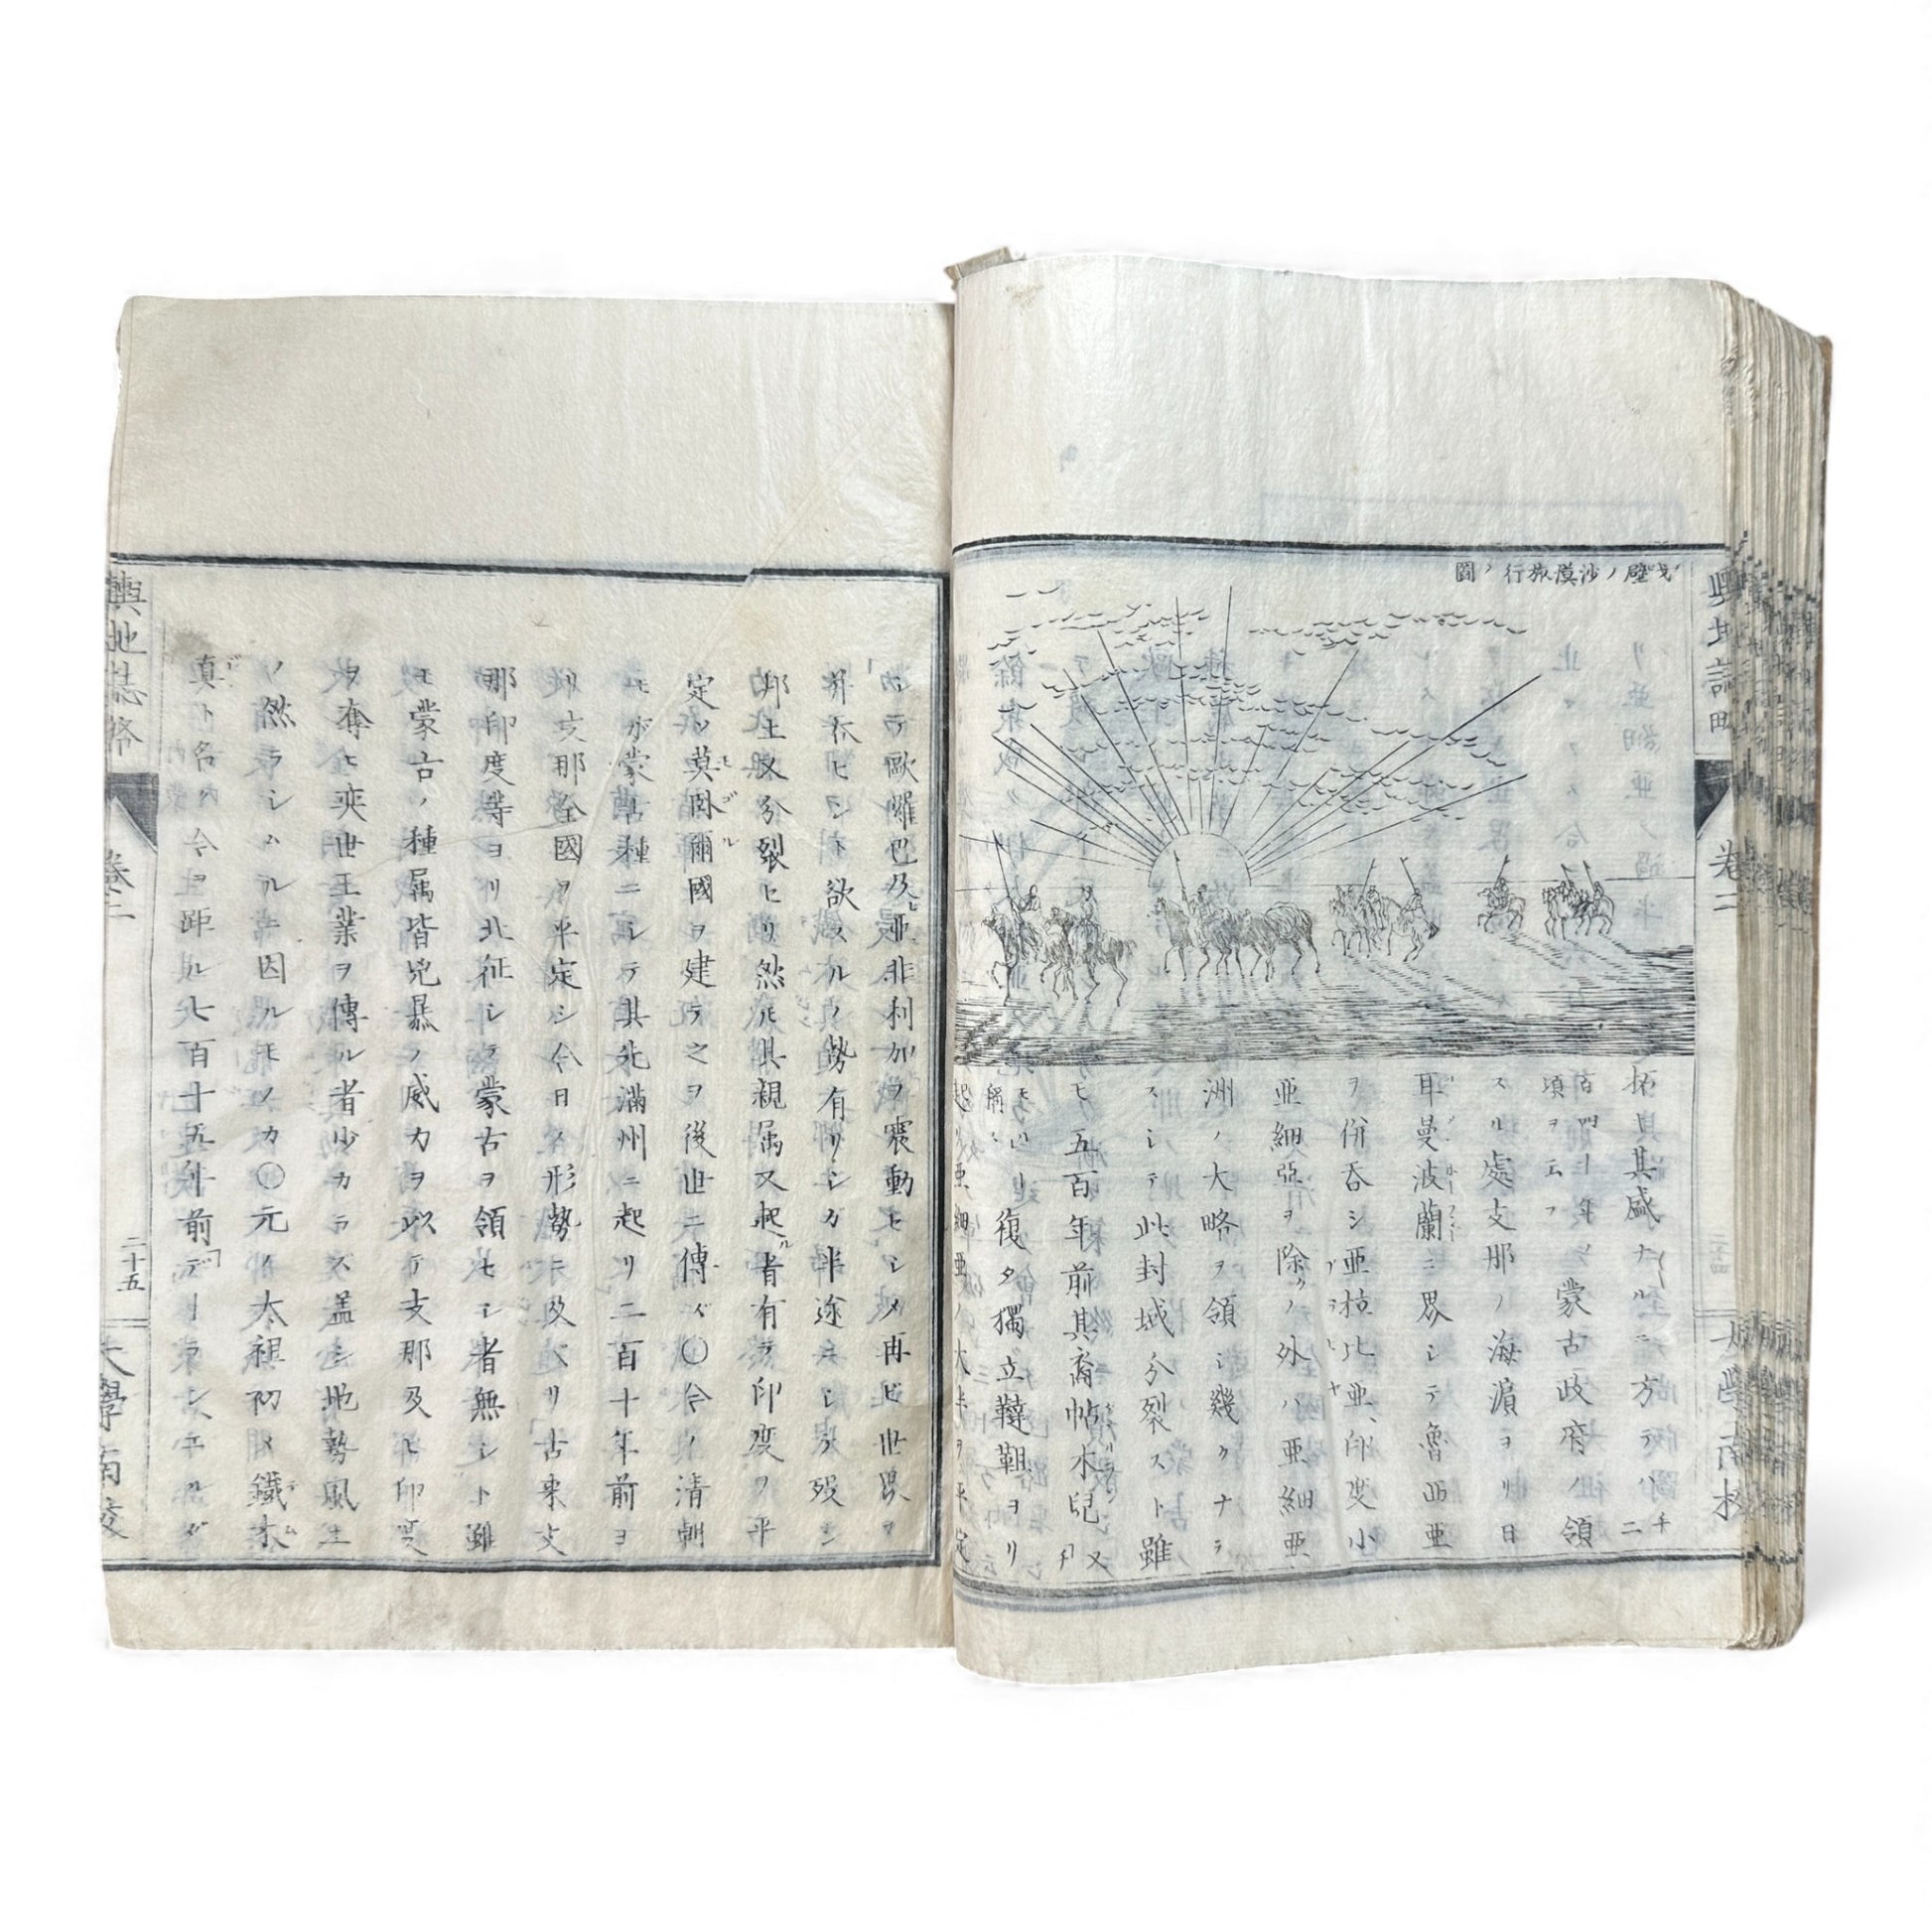 戈壁ノ沙漠旅行ノ圖
拓其盛ナルニ方テハ
蒙古政府ノ領
スル處支那ノ海濵ヨリ日
耳曼波蘭ニ界シテ魯西亜
ヲ併吞シ亜 比亜、印度小
亜細亞ヲ除クノ外ハ亜細亜
洲ノ大略ヲ領シ幾クナラ
スシテ此封域分裂スト雖
モ五百年前其裔帖木兒又
復タ獨立韃靼ヨリ
起リ亜細亜ノ大半ヲ平定
シテ歐羅巴及亜非利加ヲ震動セシメ再ビ世界ヲ
并吞セント欲スルノ勢有リシガ半途ニシテ歿シ
邦土又分裂セリ然𪜈其親属又起ル者有テ印度ヲ平
定シ莫卧爾國ヲ建テ之ヲ後世ニ傳ヘ〇今ノ清朝
モ亦蒙古種ニシテ其北滿州ニ起リ二百十年前ヨ
リ支那全國ヲ平定シ今日ノ形勢ニ及ベリ古来支
那印度等ヨリ北征シテ蒙古ヲ領セシ者無シト雖
モ蒙古ノ種属皆兇暴ノ威力ヲ以テ支那及ヒ印度
ヲ奪ヒ奕世王業ヲ傳ル者少カラズ蓋シ地勢風土
ノ然ラシムル 因ルモノカ〇元ノ太祖初メ鐵木
真ト名ク今ヲ距ル七百十五年前
輿地誌畧 卷二 二十五 大學南校